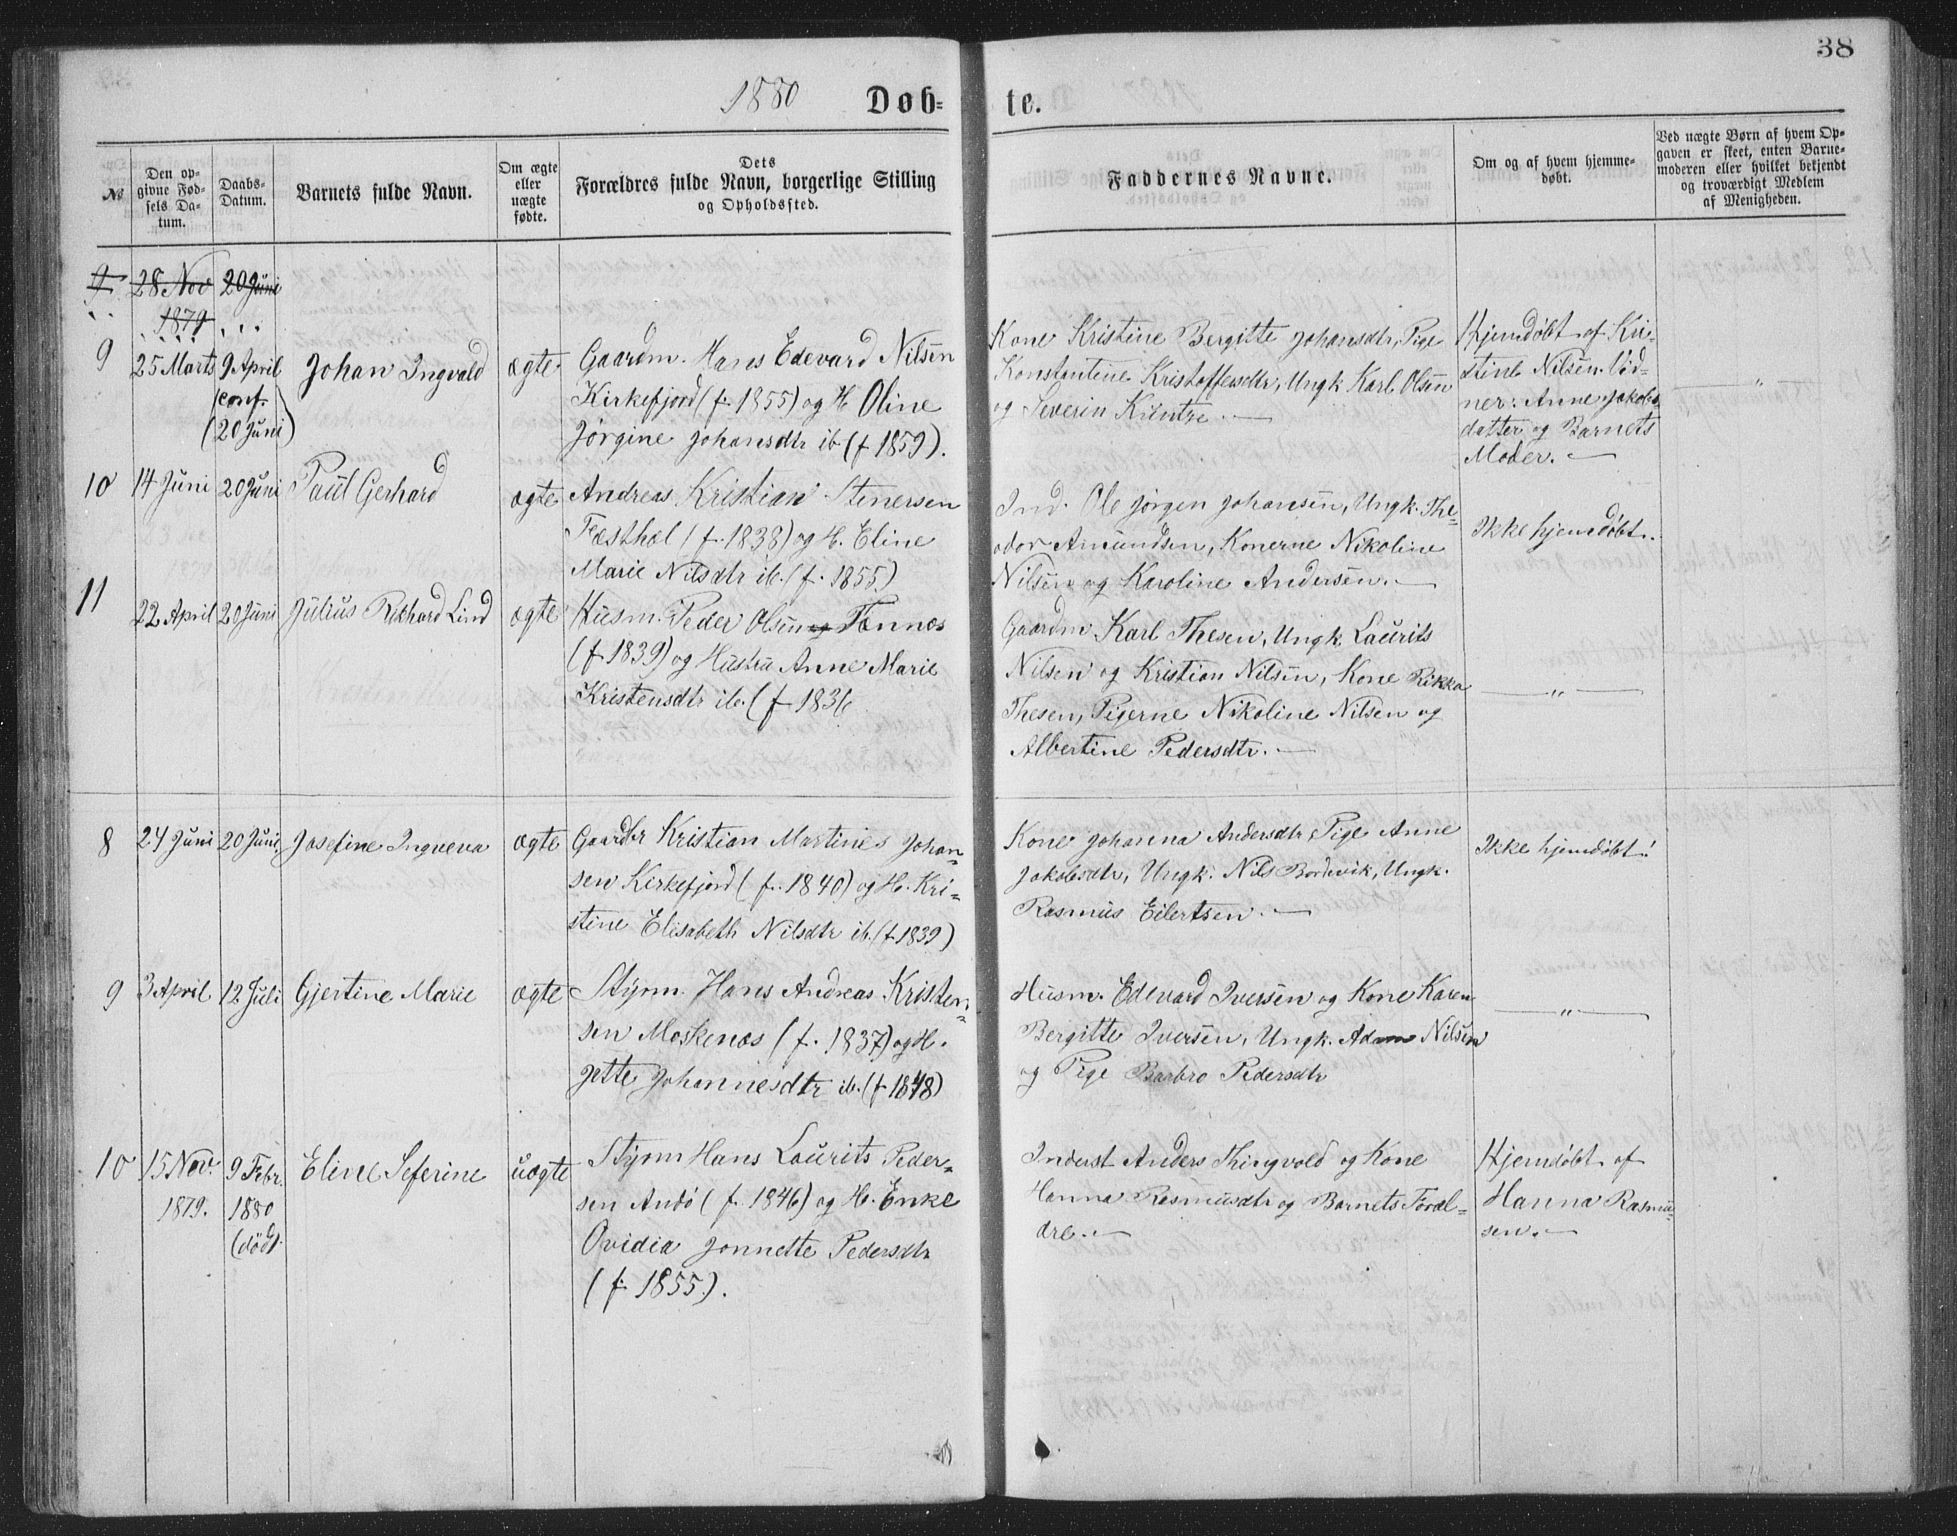 38
1880 Døb- te.
№
Den op-
givne Fød-
sels Da-
tum.
Daabs-
Datum.
Barnets fulde Navn.
Om ægte
eller
uægte
fødte.
Dets
Forældres fulde Navn, borgerlige Stilling
og Opholdssted.
Faddernes Navne.
Om og af hvem hjemme-
døbt.
Ved uægte Børn af hvem Op-
gaven er skeet, enten Barne-
moderen eller hvilket bekjendt
og troværdigt Medlem
af Menigheden.
9 28 Nov 20 Juni
1879
9 25 Marts 9 April
(conf.
(20 Juni)
Johan Ingvald
ægte
Gaardm. Hans Edevard Nilsen
Kirkefjord (f. 1855) og H. Oline
Jørgine Johansdtr ib (f 1859).
Kone Kristine Bergitte Johansdtr, Pige
Konstantine Kristoffersdtr, Ungk Karl Olsen
og Severin
Hjemdøbt af Kri-
stine Nilsen. Vid-
ner: Anne Jakobs
datter og Barnets
Moder.
10 14 Juni 20 Juni Paul Gerhard
ægte
Andreas Kristian Stenersen
Fæsthæl (f. 1838) og H. Eline
Marie Nilsdtr ib. (f. 1855)
Ind. Ole Jørgen Johansen, Ungk. The-
odor Amundsen, Konerne Nikoline
Nilsen og Karoline Andersen.
Ikke hjemdøbt.
11 22 April 20 Juni Julius Rikhard Lind
ægte
Husm. Peder Olsen og Tennes
(f 1839) og Hustru Anne Marie
Kristensdtr ib. (f 1836
Gaardm Karl Thesen, Ungk. Laurits
Nilsen og Kristian Nilsen, Kone Rikka
Thesen, Pigerne Nikoline Nilsen og
Albertine Pedersdtr.
— " —
8 24 Juni 20 Juni Josefine Ingveva
ægte
Gaardbr Kristian Martines Johan-
sen Kirkefjord (f. 1840) og H. Kri-
stine Elisabeth Nilsdtr ib. (f 1839)
Kone Johanna Andersdtr, Pige Anne
Jakobsdtr, Ungk. Nils Bordevik, Ungk.
Rasmus Eilertsen.
Ikke hjemdøbt!
9 3 April 12 Juli Gjertine Marie
ægte
Styrm. Hans Andreas Kristen-
sen Moskenæs (f. 1837) og H.
Jette Johannesdtr ib. (f 1848)
Husm. Edevard Iversen og Kone Karen
Bergitte Iversen, Ungk. Adam Nilsen
og Pige Barbro Pedersdtr
— " —
10 15 Nov. 9 Febr.
1879. 1880
(død).
Eline Seferine
uægte
Styrm Hans Laurits Peder-
sen Andø (f 1846) og H. Enke
Ovidia Jonnette Pedersdtr
(f. 1855).
Inderst Anders Thingvold og Kone
Hanna Rasmusdtr og Barnets Foræl-
dre.
Hjemdøbt af
Hanna Rasmu-
sen.